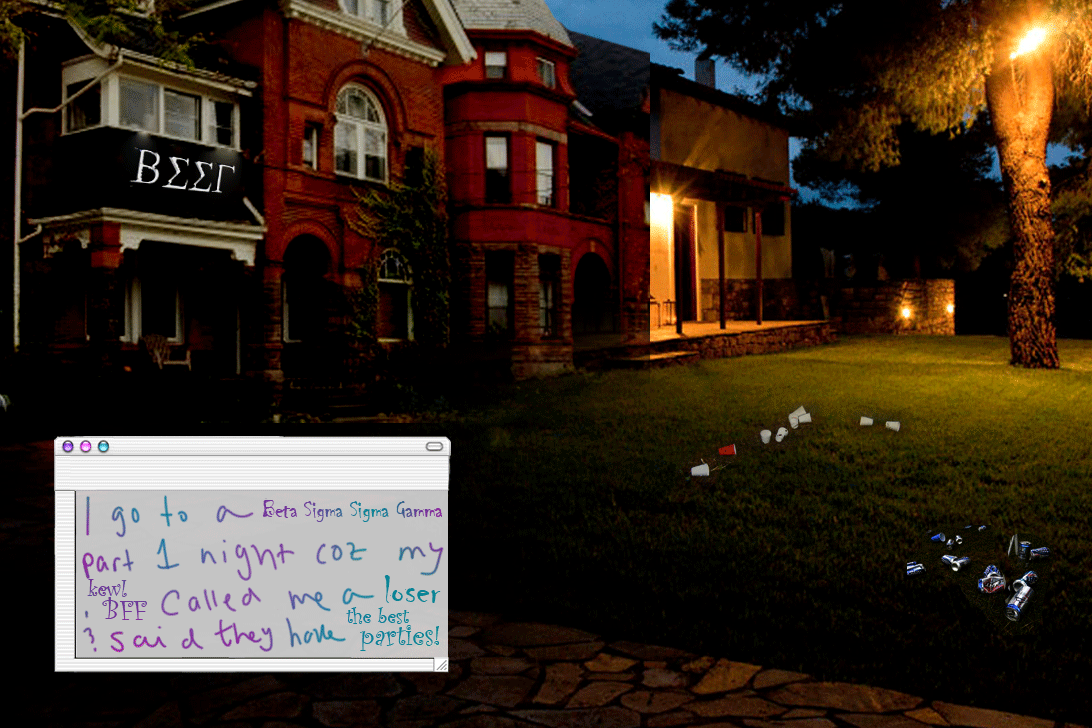 ΒΣΣΓ
I go to a Beta Sigma Sigma Gamma
part 1 night coz my
kewl
BFF Called me a loser
? said they have the best
parties!